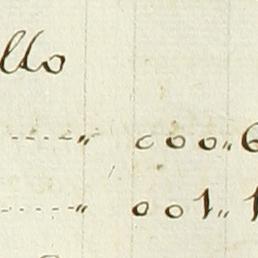 llo
---- " 000 „ 6
---- " 001 „ 1